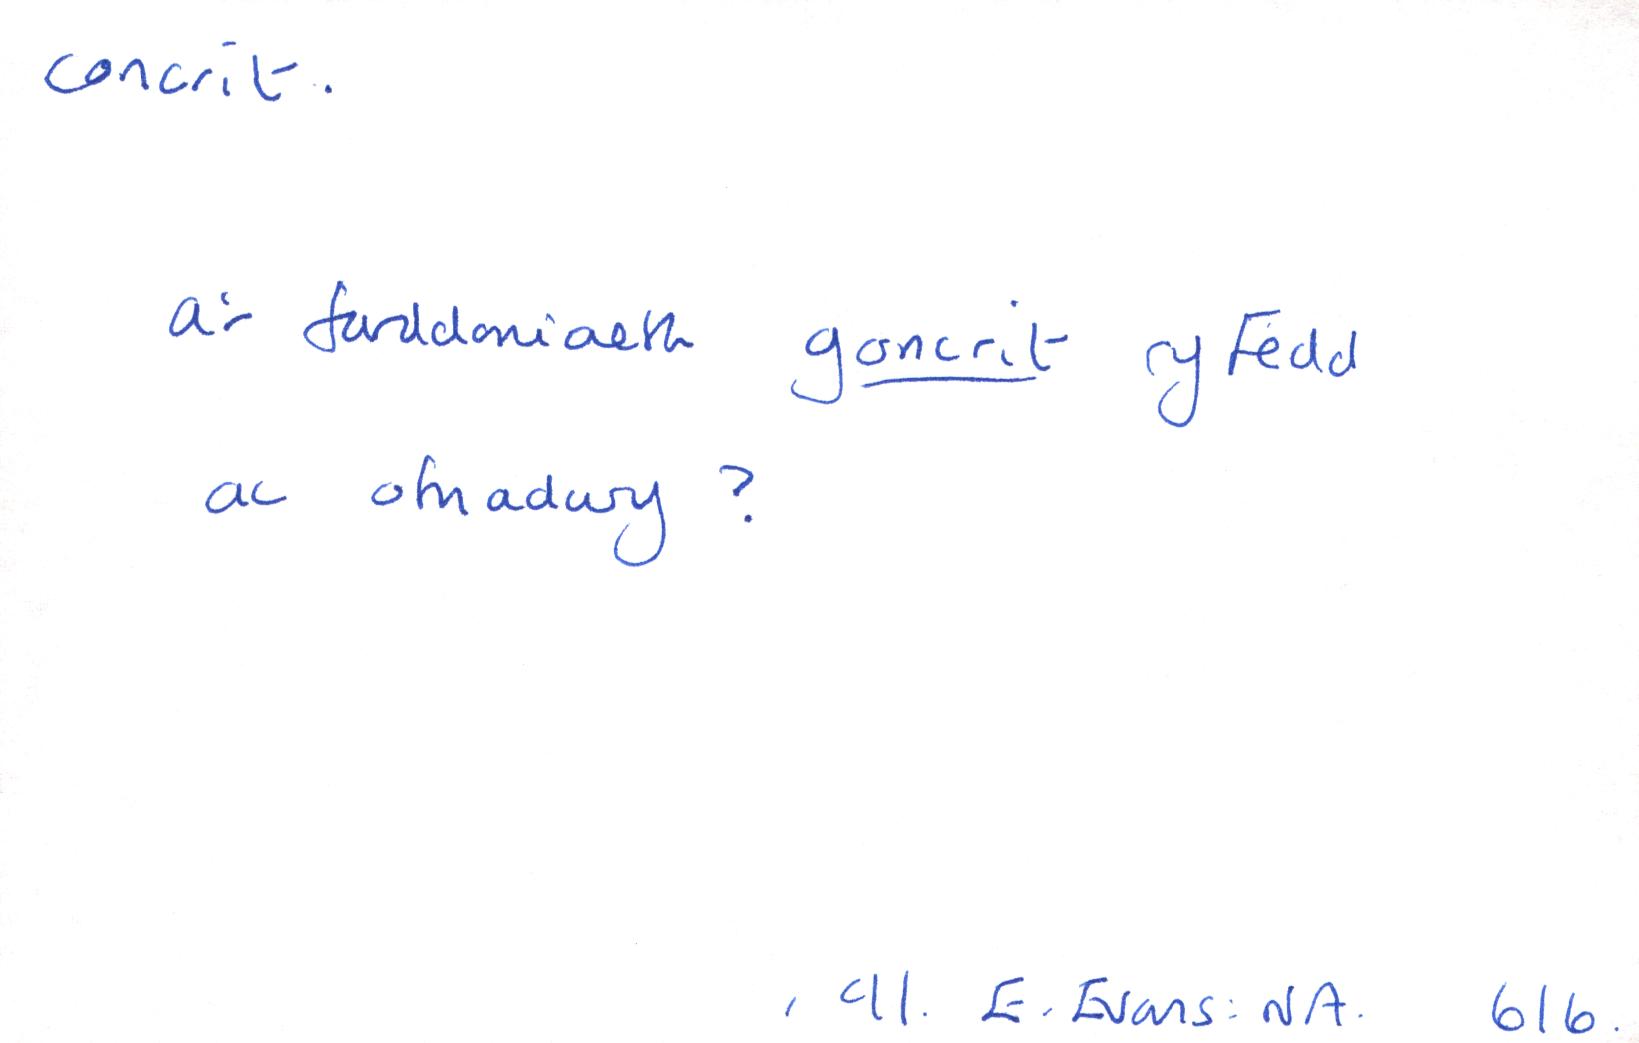 concrit.
a'r farddoniaeth goncrit ryfedd
ac ofnadwy ?
, 911. E. Evans: NA. 616.